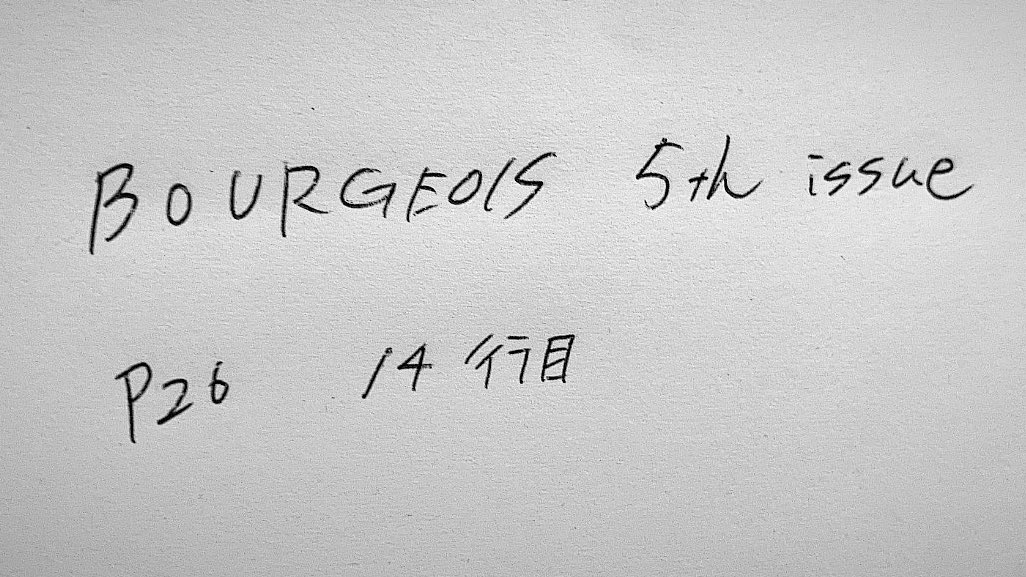 BOURGEOIS 5th issue
P26 14行目